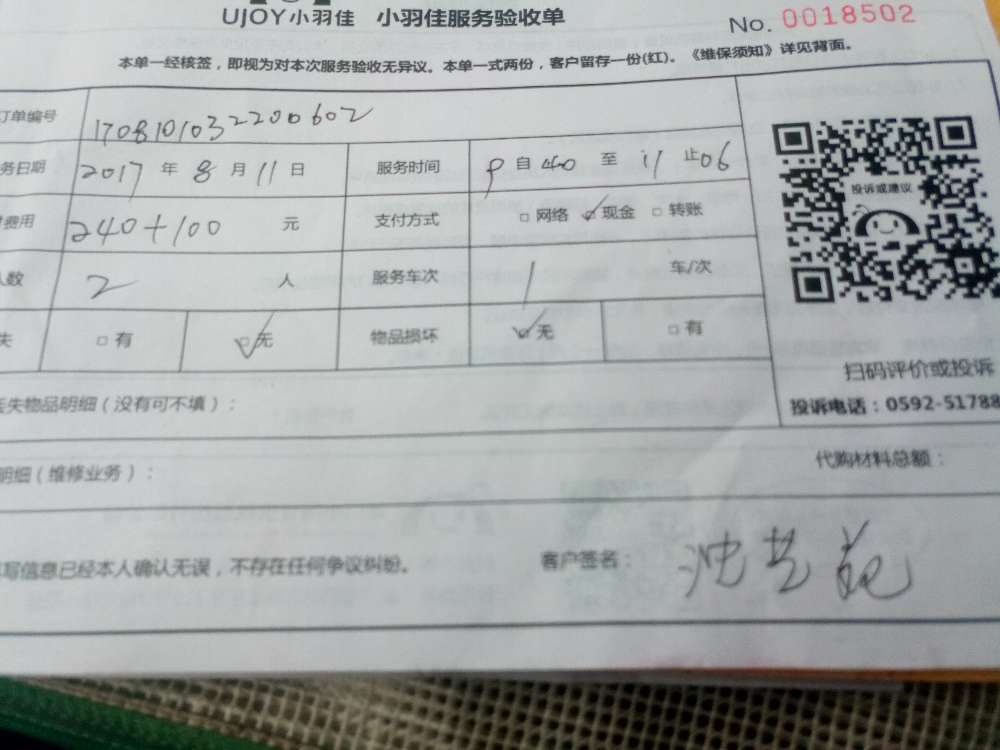 UJOY小羽佳 小羽佳服务验收单
No. 0018502
本单一经核签，即视为对本次服务验收无异议。本单一式两份，客户留存一份(红)。《维保须知》详见背面。
订单编号 1708101032200602
务日期 2017 年 8 月 11 日 服务时间 自 至 11 止06
费用 240+100 元 支付方式 □网络 ☑现金 □转账
人数 2 人 服务车次 1 车/次
失 □有 ☑无 物品损坏 ☑无 □有
投诉或建议
扫码评价或投诉
投诉电话：0592-51788
丢失物品明细（没有可不填）：
明细（维修业务）： 代购材料总额：
写信息已经本人确认无误，不存在任何争议纠纷。 客户签名：沈